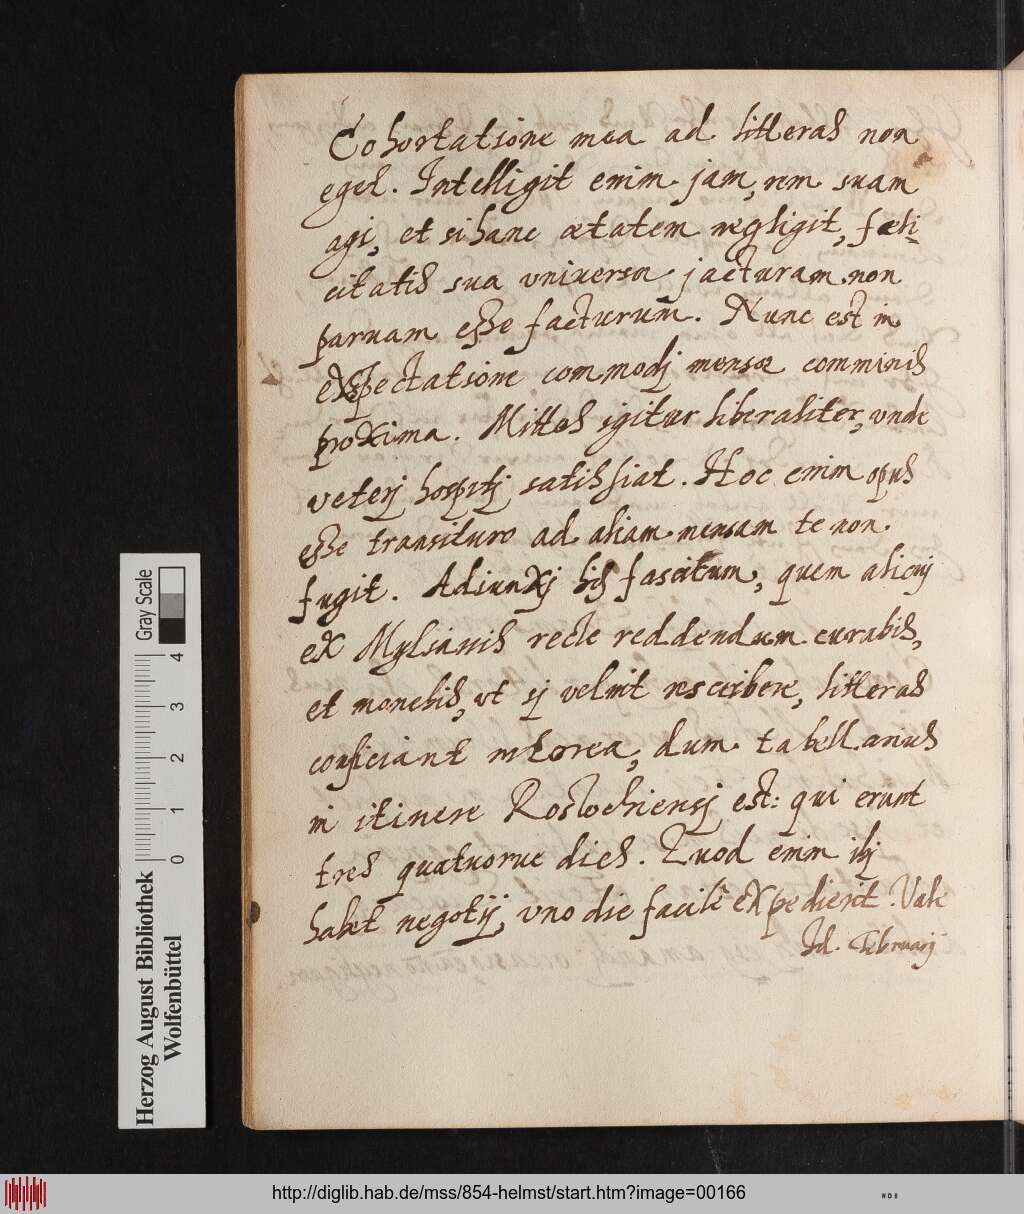 Cohortatione mea ad litteras non
eget. Intelligit enim jam, rem suam
agi, et si hanc ætatem negligit, fæli-
citatis suæ vniuersæ jacturam non
paruam esse facturum. Nunc est in
exspectatione commodj mensæ comminis
proxima. Mittes igitur liberaliter, vnde
veterj hospitj satisfiat. Hoc enim opus
esse transituro ad aliam mensam te non
fugit. Adiunxj his fascitum, quem alicuj
ex Mylsianis recte reddendum curabis,
et monebis, vt sj velint rescribere, litteras
conficiant interea, dum tabellarius
in itinere Rostochiensj est: qui erunt
tres quatuorue dies. Quod enim ibj
habet negotij, vno die facilè expedierit. Vale
Id. Februarij
Herzog August Bibliothek
Wolfenbüttel
0 1 2 3 4
Gray Scale
http://diglib.hab.de/mss/854-helmst/start.htm?image=00166